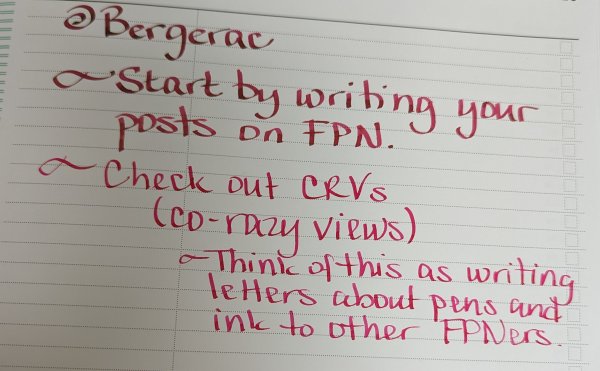 @Bergerac
~Start by writing your
posts on FPN.
~Check out CRVs
(co-razy views)
~Think of this as writing
letters about pens and
ink to other FPNers.